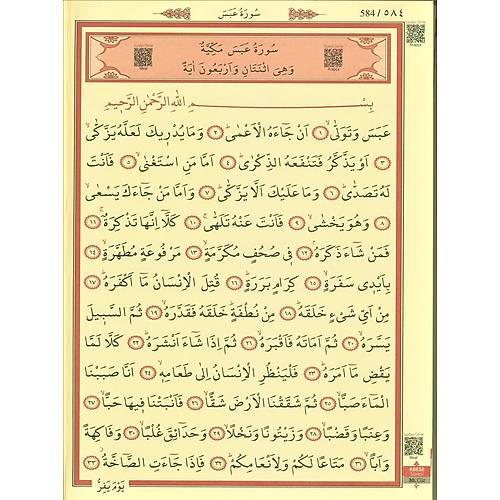 سُورَةُ عَبَسَ
٥٨٤ / 584
سُورَةُ عَبَسَ مَكِّيَّةٌ
وَهِيَ اثْنَتَانِ وَاَرْبَعُونَ اٰيَةً
بِسْمِ اللّٰهِ الرَّحْمٰنِ الرَّحٖيمِ
عَبَسَ وَتَوَلّٰىۙ ﴿١﴾ اَنْ جَٓاءَهُ الْاَعْمٰىۜ ﴿٢﴾ وَمَا يُدْرٖيكَ لَعَلَّهُ يَزَّكّٰىۙ
﴿٣﴾ اَوْ يَذَّكَّرُ فَتَنْفَعَهُ الذِّكْرٰىۜ ﴿٤﴾ اَمَّا مَنِ اسْتَغْنٰىۙ ﴿٥﴾ فَاَنْتَ
لَهُ تَصَدّٰىۜ ﴿٦﴾ وَمَا عَلَيْكَ اَلَّا يَزَّكّٰىۜ ﴿٧﴾ وَاَمَّا مَنْ جَٓاءَكَ يَسْعٰىۙ
﴿٨﴾ وَهُوَ يَخْشٰىۙ ﴿٩﴾ فَاَنْتَ عَنْهُ تَلَهّٰىۚ ﴿١٠﴾ كَلَّٓا اِنَّهَا تَذْكِرَةٌۚ ﴿١١﴾
فَمَنْ شَٓاءَ ذَكَرَهُۢ ﴿١٢﴾ فٖي صُحُفٍ مُكَرَّمَةٍۙ ﴿١٣﴾ مَرْفُوعَةٍ مُطَهَّرَةٍۙ ﴿١٤﴾
بِاَيْدٖي سَفَرَةٍۙ ﴿١٥﴾ كِرَامٍ بَرَرَةٍۜ ﴿١٦﴾ قُتِلَ الْاِنْسَانُ مَٓا اَكْفَرَهُۜ ﴿١٧﴾
مِنْ اَيِّ شَيْءٍ خَلَقَهُۜ ﴿١٨﴾ مِنْ نُطْفَةٍۜ خَلَقَهُ فَقَدَّرَهُۙ ﴿١٩﴾ ثُمَّ السَّبٖيلَ
يَسَّرَهُۙ ﴿٢٠﴾ ثُمَّ اَمَاتَهُ فَاَقْبَرَهُۙ ﴿٢١﴾ ثُمَّ اِذَا شَٓاءَ اَنْشَرَهُۜ ﴿٢٢﴾ كَلَّا لَمَّا
يَقْضِ مَٓا اَمَرَهُۜ ﴿٢٣﴾ فَلْيَنْظُرِ الْاِنْسَانُ اِلٰى طَعَامِهٖۙ ﴿٢٤﴾ اَنَّا صَبَبْنَا
الْمَٓاءَ صَبًّاۙ ﴿٢٥﴾ ثُمَّ شَقَقْنَا الْاَرْضَ شَقًّاۙ ﴿٢٦﴾ فَاَنْبَتْنَا فٖيهَا حَبًّاۙ ﴿٢٧﴾
وَعِنَبًا وَقَضْبًاۙ ﴿٢٨﴾ وَزَيْتُونًا وَنَخْلًاۙ ﴿٢٩﴾ وَحَدَٓائِقَ غُلْبًاۙ ﴿٣٠﴾ وَفَاكِهَةً
وَاَبًّاۙ ﴿٣١﴾ مَتَاعًا لَكُمْ وَلِاَنْعَامِكُمْۜ ﴿٣٢﴾ فَاِذَا جَٓاءَتِ الصَّٓاخَّةُۘ ﴿٣٣﴾
يَوْمَ يَفِرُّ
ABESE
30. Cüz